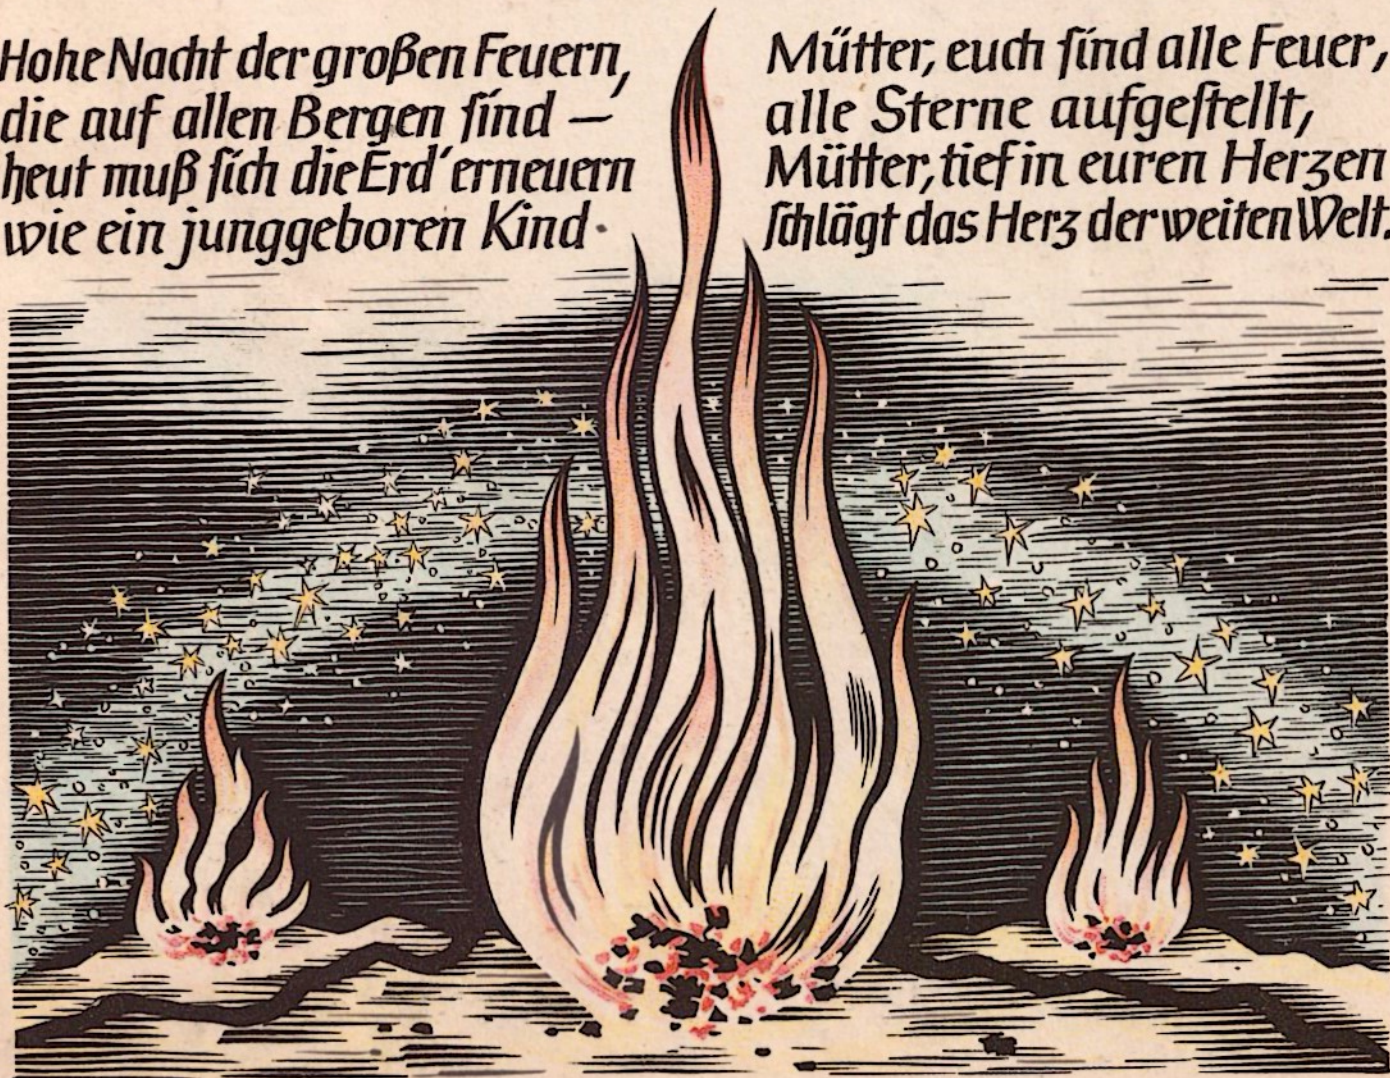 Hohe Nacht der großen Feuern,
die auf allen Bergen ſind —
heut muß ſich die Erd' erneuern
wie ein junggeboren Kind.
Mütter, euch ſind alle Feuer,
alle Sterne aufgeſtellt,
Mütter, tief in euren Herzen
ſchlägt das Herz der weiten Welt.